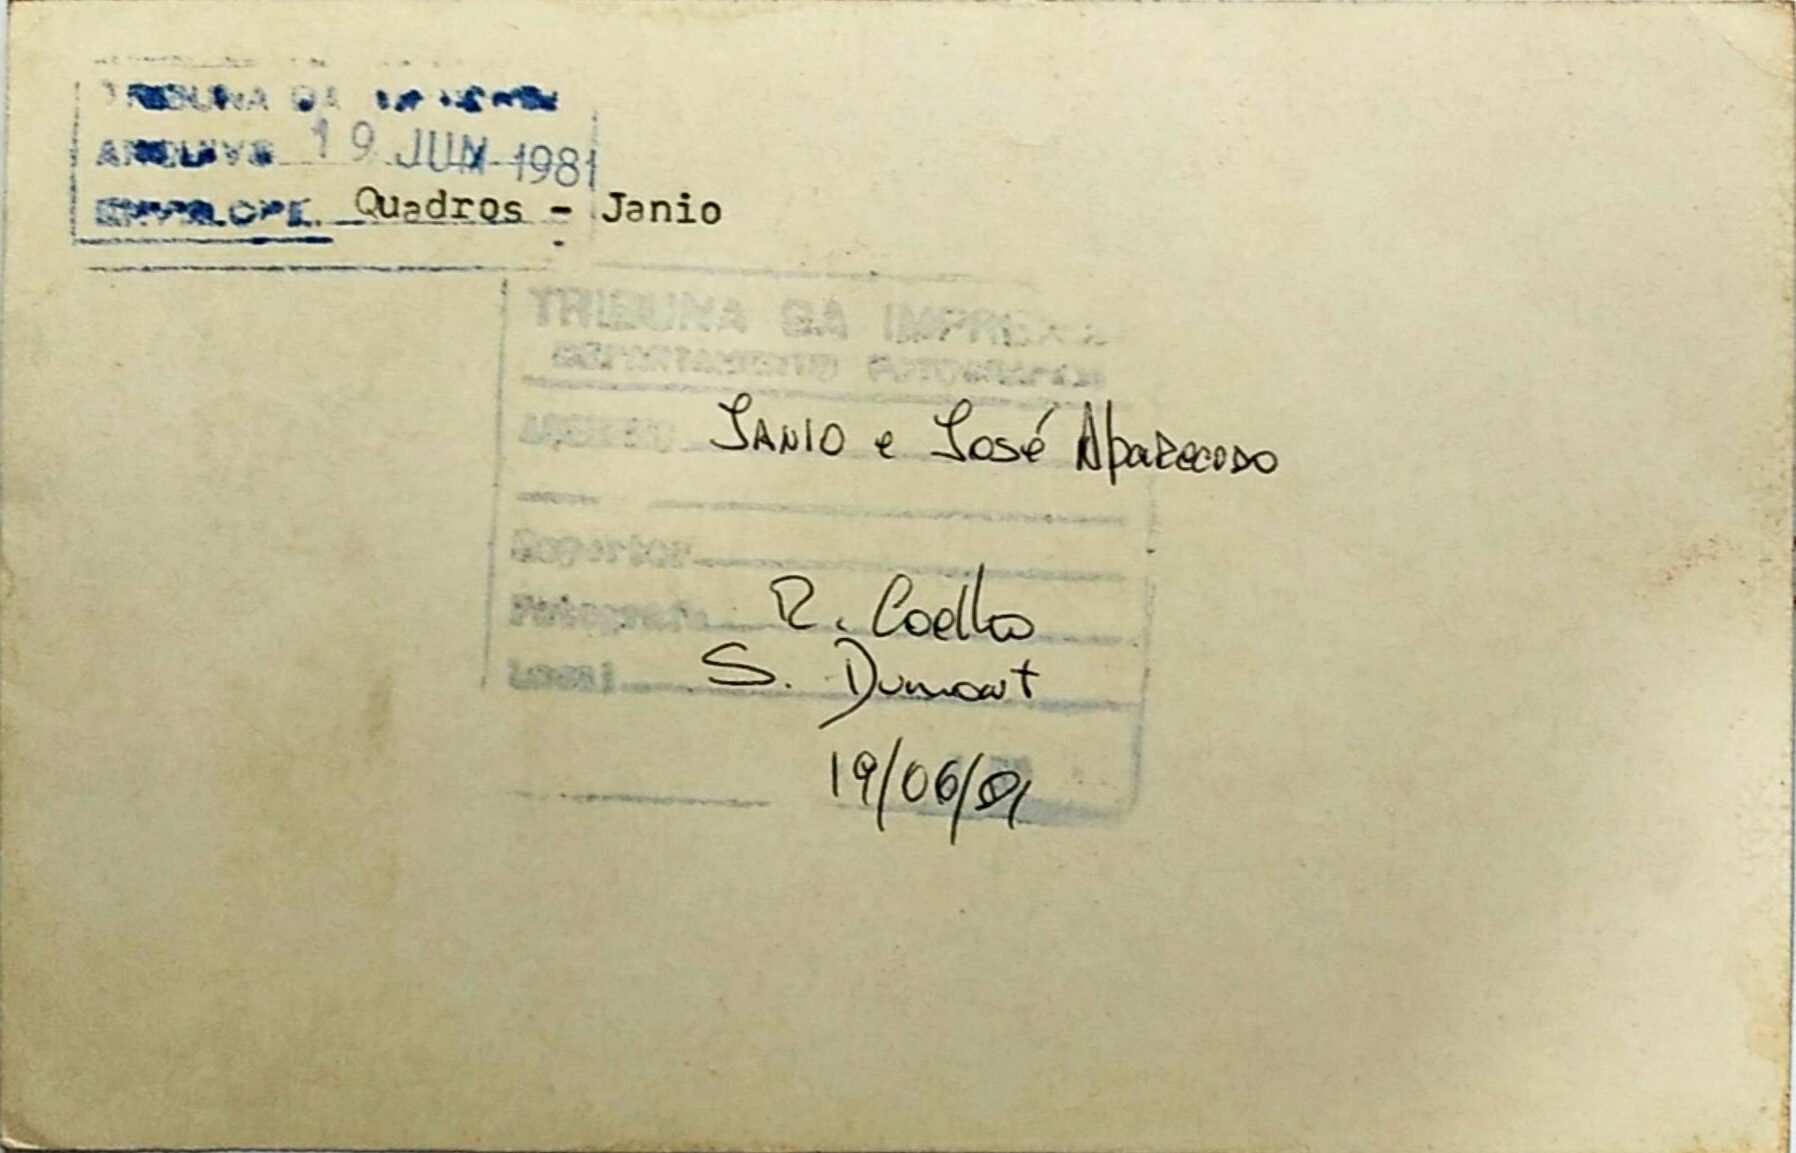 TRIBUNA DA IMPRENSA
ARQUIVO 19 JUN 1981
ENVELOPE Quadros - Janio
TRIBUNA DA IMPRENSA
DEPARTAMENTO FOTOGRAFICO
JANIO e José Aparecido
Reporter
Fotografo R. Coelho
Local S. Dumont
19/06/81